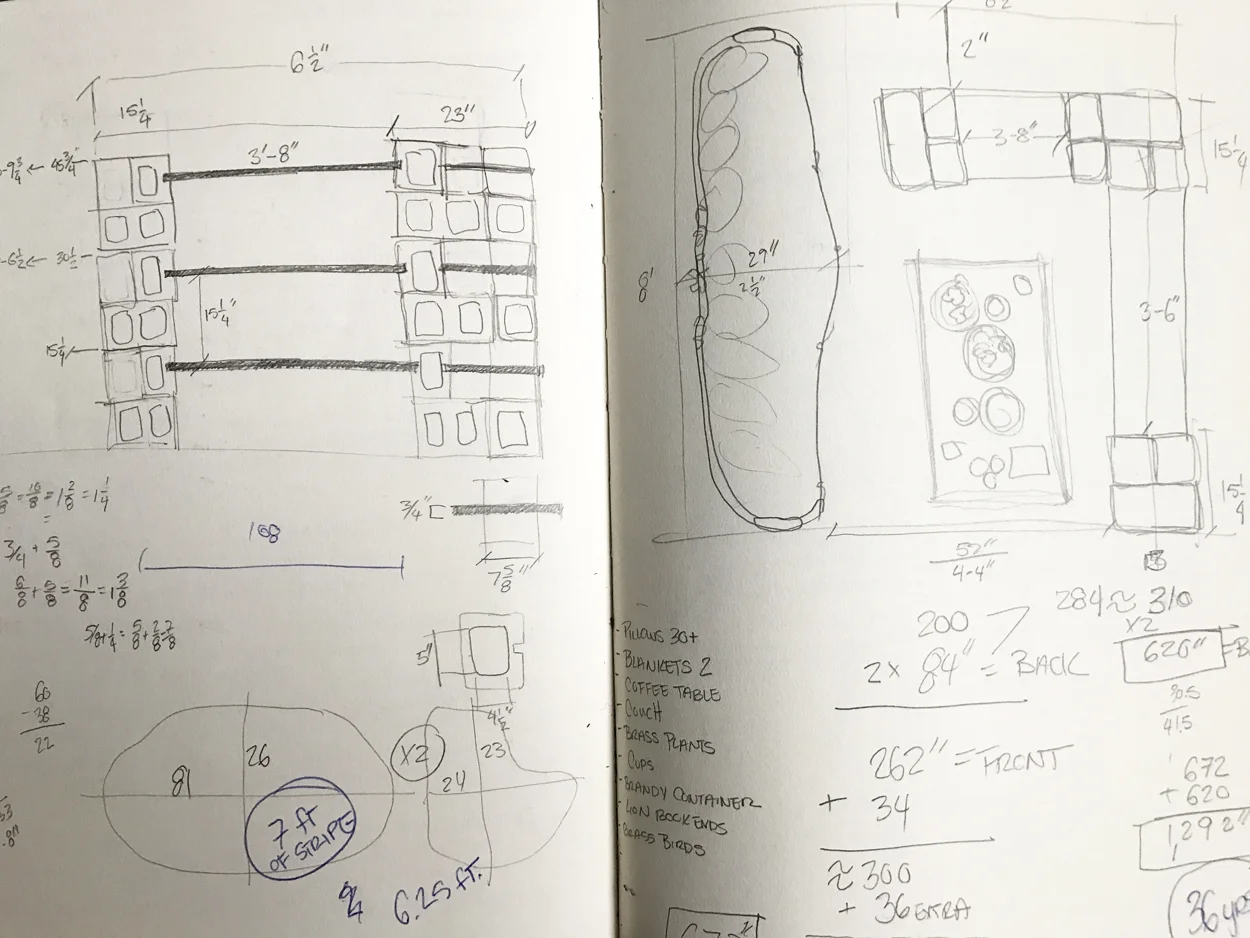 6 1/2"
15 1/4
23"
3'-8"
-9 3/4 ← 45 3/4"
-6 1/2 ← 30 1/2
15 1/4"
15 1/4
= 10/8 = 1 2/8 = 1 1/4
3/4 + 5/8
6/8 + 5/8 = 11/8 = 1 3/8
5/8 + 1/4 = 5/8 + 2/8 = 7/8
168
3/4"
7 5/8"
5"
4 1/2"
60
- 38
22
81
26
X2
24
23
7 ft
OF STRIPE
6.25 ft.
2"
3-8"
15 1/4
8'
29"
2 1/2"
3-6"
15 1/4
52"
4-4"
- PILLOWS 30+
- BLANKETS 2
- COFFEE TABLE
- COUCH
- BRASS PLANTS
- CUPS
- BRANDY CONTAINER
- LION BOOKENDS
- BRASS BIRDS
200
284 ≈ 310
X2
620"
2 x 84" = BACK
262" = FRONT
+ 34
≈ 300
+ 36 EXTRA
30.5
41.5
672
+ 620
1,292"
36 yrds